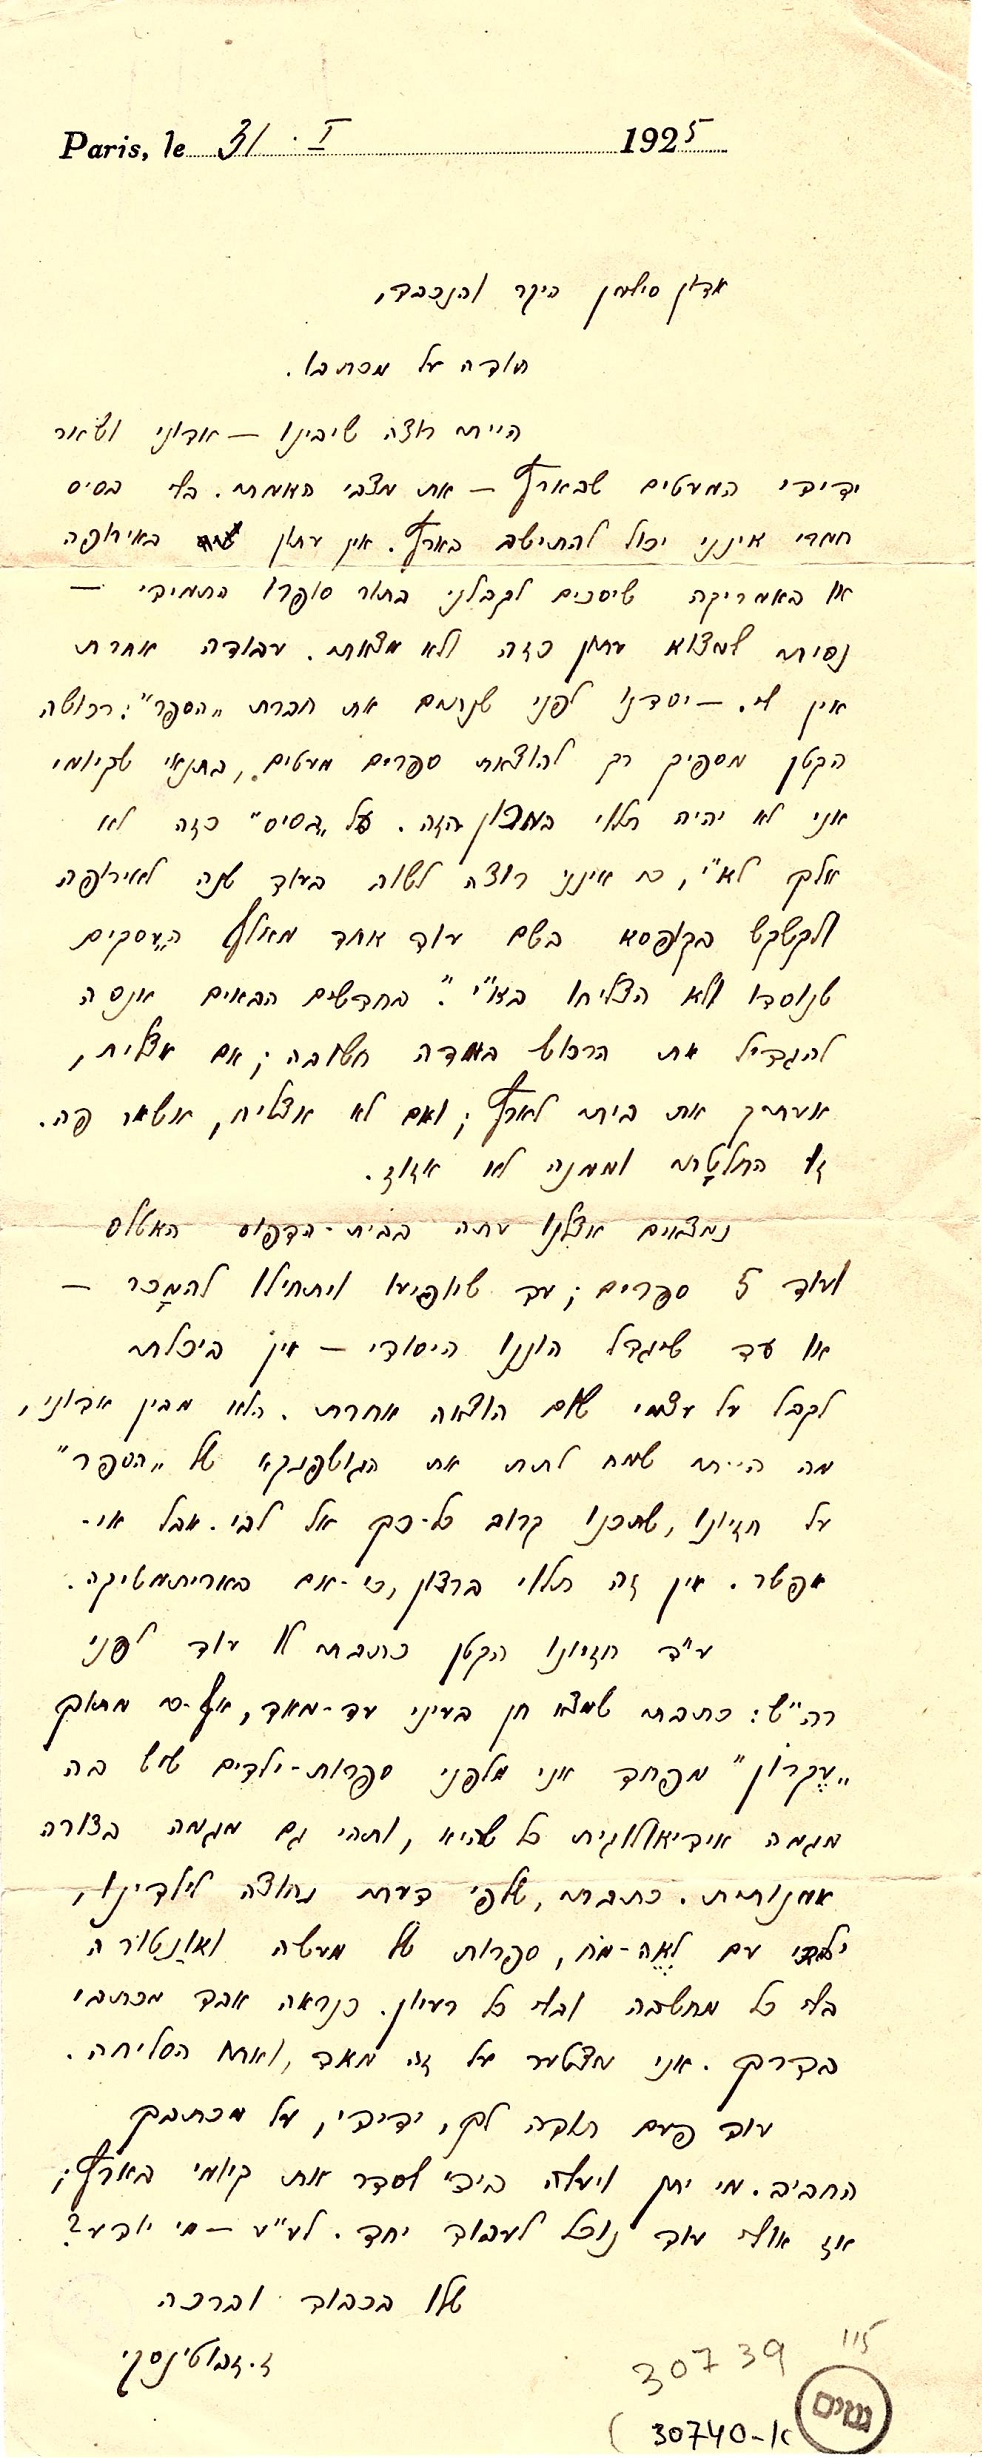 Paris, le 31 · I 1925
אדון סילמן היקר והנכבד,
תודה על מכתבו.
הייתי רוצה שיבינו — אדוני ושאר
ידידי המעטים שבארץ — את מצבי האמתי. בלי בסיס
חמרי אינני יכול להתישב בארץ. אין עתון באירופה
או באמריקה שיסכים לקבלני בתור סופרו התמידי —
נסיתי למצוא עתון כזה ולא מצאתי. עבודה אחרת
אין לי. — יסדנו לפני שנתים את חברת „הספר”: רכושה
הקטן מספיק רק להוצאת ספרים מעטים, בתנאי שקיומי
אני לא יהיה תלוי במכון הזה. על „בסיס” כזה לא
אלך לא"י, כי אינני רוצה לשוב בעוד שנה לאירופה
ולקשקש בקופסא בשם עוד אחד מאלף ה„עסקים
שנוסדו ולא הצליחו בא"י”. בחדשים הבאים אנסה
להגדיל את הרכוש במדה חשובה; אם אצליח,
אעתיק את ביתי לארץ; ואם לא אצליח, אשאר פה.
זו החלטתי וממנה לא אזוז.
נמצאים אצלנו עתה בבית-הדפוס האטלס
ועוד 5 ספרים; עד שיופיעו ויתחילו להמכר —
או עד שיגדל הוננו היסודי — אין ביכלתי
לקבל על עצמי שום הוצאה אחרת. הלא מבין אדוני,
מה הייתי שמח לתת את הגושפנקא של „הספר”
על חזיונו, שתכנו קרוב כל-כך אל לבי. אבל אי-
אפשר. אין זה תלוי ברצון, כי-אם באריתמטיקה.
ע"ד חזיונו הקטן כתבתי לו עוד לפני
רה"ש: כתבתי שמצא חן בעיני עד-מאד, אף-כי מתוך
„עקרון” מפחד אני מלפני ספרות-ילדים שיש בה
מגמה אידיאולוגית כל שהיא, ותהי גם מגמה בצורה
אמנותית. כתבתי, שלפי דעתי נחוצה לילדינו,
ילדי עם לאה-מח, ספרות של מעשה ואונטורה
בלי כל מחשבה ובלי כל רעיון. כנראה אבד מכתבי
בדרך. אני מצטער על זה מאד, ואתו הסליחה.
עוד פעם תודה לך, ידידי, על מכתבך
החביב. מי יתן ויעלה בידי לסדר את קיומי בארץ;
אז אולי עוד נוכל לעבוד יחד. לע"ע — מי יודע?
שלו בכבוד וברכה
ז. ז'בוטינסקי
115
30739
גנזים
א-30740